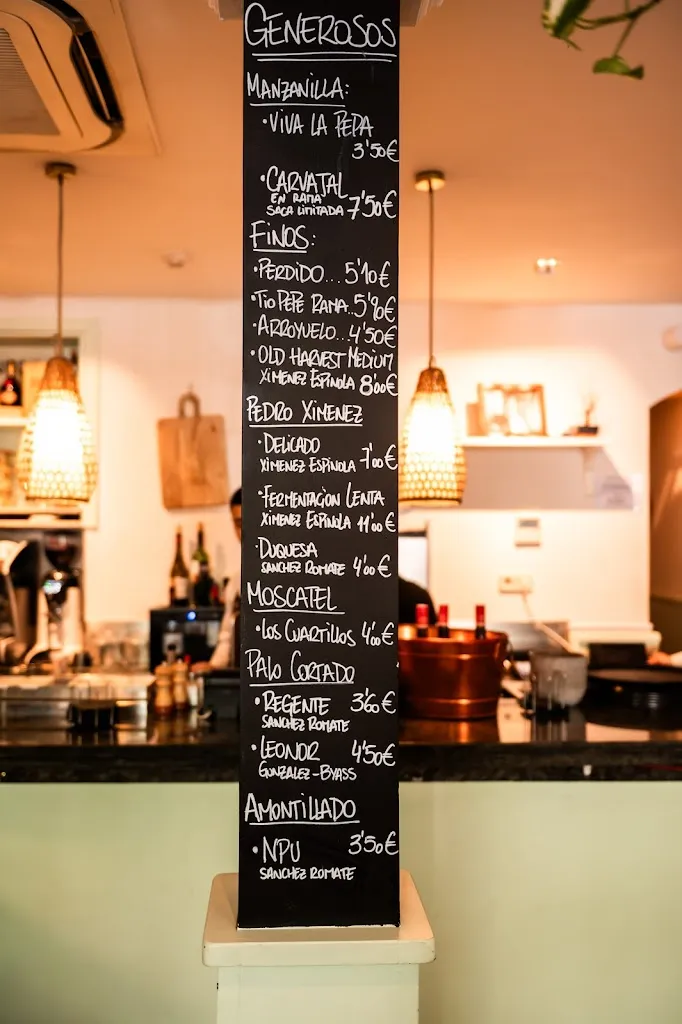 GENEROSOS
MANZANILLA:
• VIVA LA PEPA
3'50€
• CARVATAL
EN RAMA
SACA LIMITADA 7'50€
FINOS:
• PERDIDO... 5'10€
• TIO PEPE RAMA... 5'90€
• ARROYUELO... 4'50€
• OLD HARVEST MEDIUM
XIMENEZ ESPINOLA 8'00€
PEDRO XIMENEZ
• DELICADO
XIMENEZ ESPINOLA 7'00€
• FERMENTACION LENTA
XIMENEZ ESPINOLA 11'00€
• DUQUESA
SANCHEZ ROMATE 4'00€
MOSCATEL
• LOS CUARTILLOS 4'00€
PALO CORTADO
• REGENTE 3'60€
SANCHEZ ROMATE
• LEONOR 4'50€
GONZALEZ-BYASS
AMONTILLADO
• NPU 3'50€
SANCHEZ ROMATE